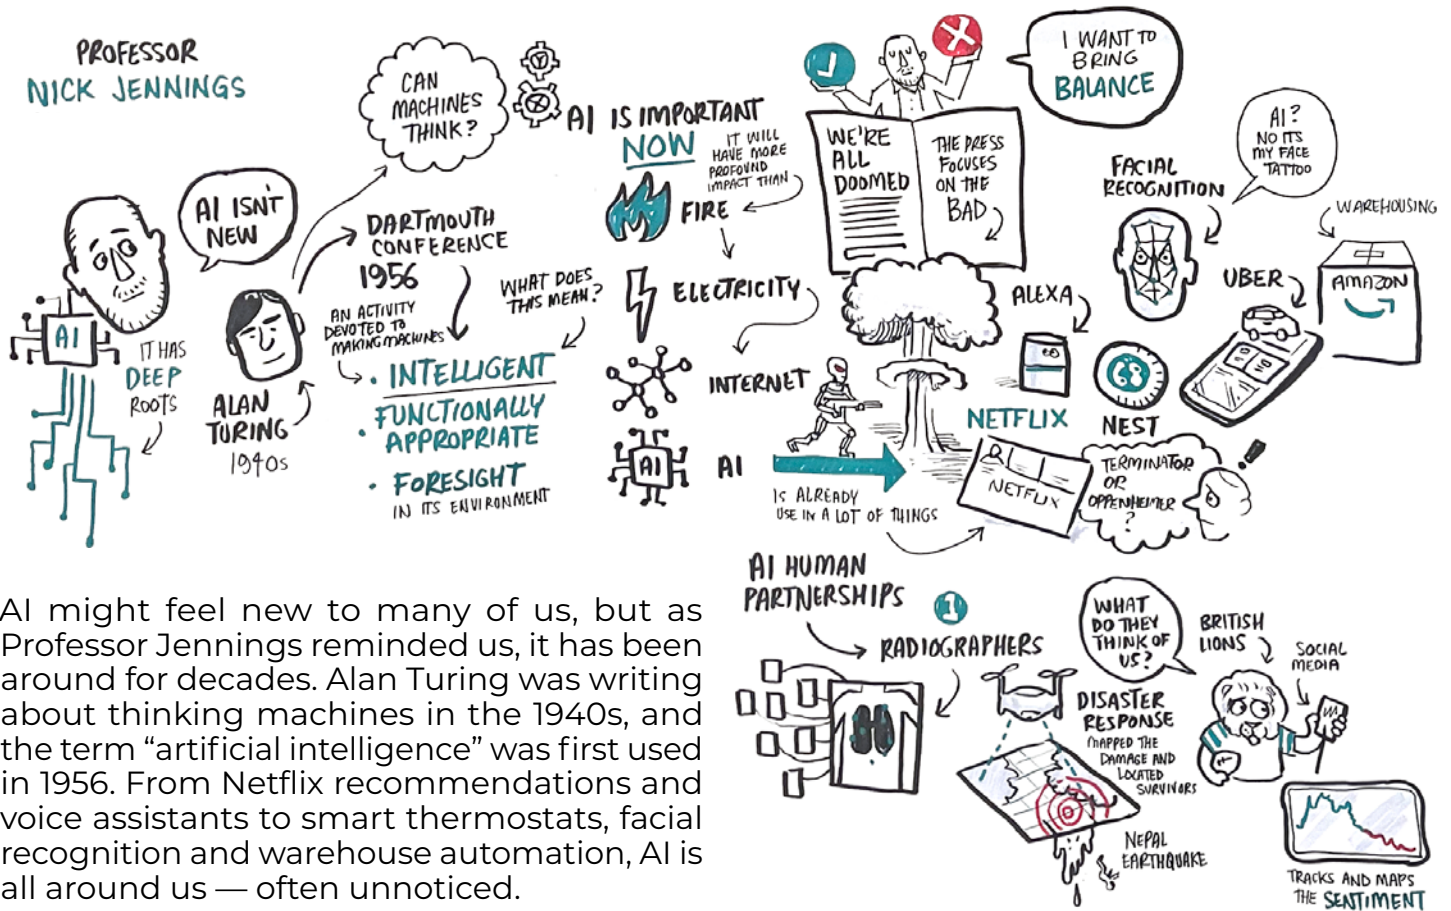 PROFESSOR
NICK JENNINGS
AI ISN'T
NEW
AI
IT HAS
DEEP
ROOTS
ALAN
TURING
1940s
CAN
MACHINES
THINK?
DARTMOUTH
CONFERENCE
1956
AN ACTIVITY
DEVOTED TO
MAKING MACHINES
WHAT DOES
THIS MEAN?
• INTELLIGENT
• FUNCTIONALLY
APPROPRIATE
• FORESIGHT
IN ITS ENVIRONMENT
AI IS IMPORTANT
NOW
IT WILL
HAVE MORE
PROFOUND
IMPACT THAN
FIRE
ELECTRICITY
INTERNET
AI
AI
IS ALREADY
USE IN A LOT OF THINGS
I WANT TO
BRING
BALANCE
WE'RE
ALL
DOOMED
THE PRESS
FOCUSES
ON THE
BAD
ALEXA
FACIAL
RECOGNITION
AI?
NO ITS
MY FACE
TATTOO
WAREHOUSING
AMAZON
UBER
NETFLIX
NETFLIX
68
NEST
TERMINATOR
OR
OPPENHEIMER
?
AI HUMAN
PARTNERSHIPS
1
RADIOGRAPHERS
DISASTER
RESPONSE
MAPPED THE
DAMAGE AND
LOCATED
SURVIVORS
NEPAL
EARTHQUAKE
WHAT
DO THEY
THINK OF
US?
BRITISH
LIONS
SOCIAL
MEDIA
TRACKS AND MAPS
THE SENTIMENT
AI might feel new to many of us, but as
Professor Jennings reminded us, it has been
around for decades. Alan Turing was writing
about thinking machines in the 1940s, and
the term “artificial intelligence” was first used
in 1956. From Netflix recommendations and
voice assistants to smart thermostats, facial
recognition and warehouse automation, AI is
all around us — often unnoticed.